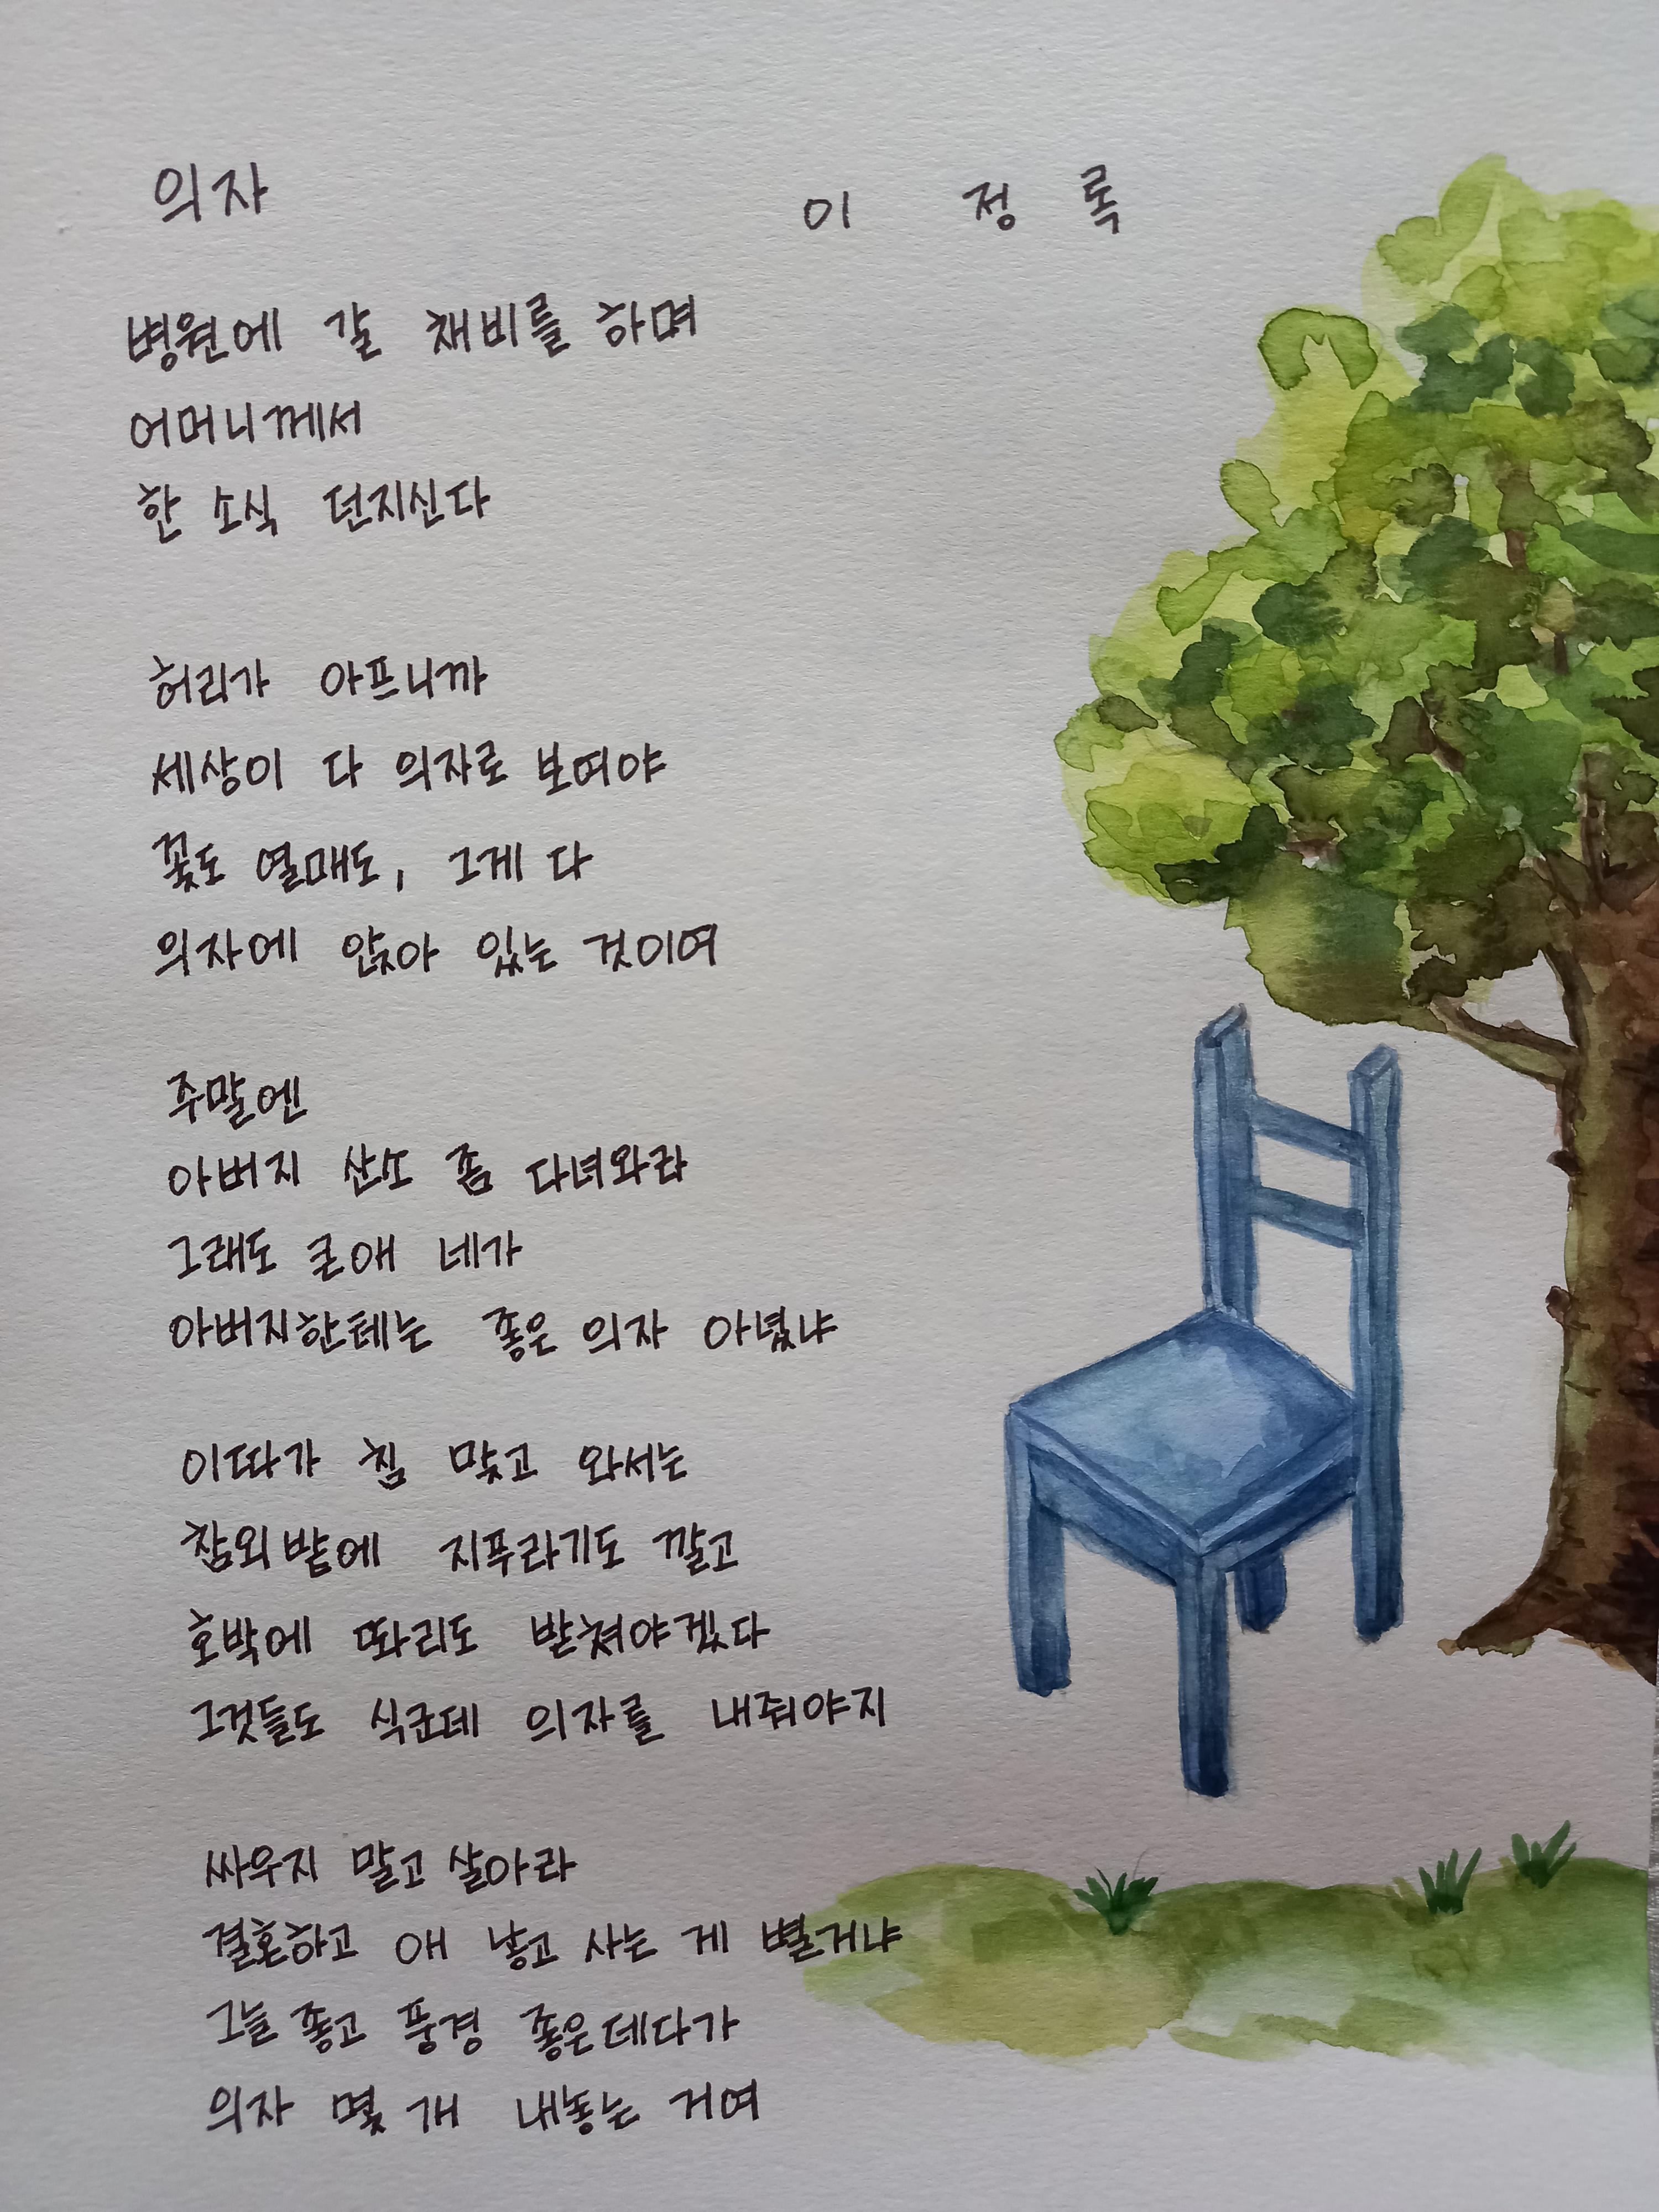 의자 이 정 록
병원에 갈 채비를 하며
어머니께서
한 소식 던지신다
허리가 아프니까
세상이 다 의자로 보여야
꽃도 열매도, 그게 다
의자에 앉아 있는 것이여
주말엔
아버지 산소 좀 다녀와라
그래도 큰애 네가
아버지한테는 좋은 의자 아녔냐
이따가 침 맞고 와서는
참외밭에 지푸라기도 깔고
호박에 똬리도 받쳐야겠다
그것들도 식군데 의자를 내줘야지
싸우지 말고 살아라
결혼하고 애 낳고 사는 게 별거냐
그늘 좋고 풍경 좋은데다가
의자 몇 개 내놓는 거여